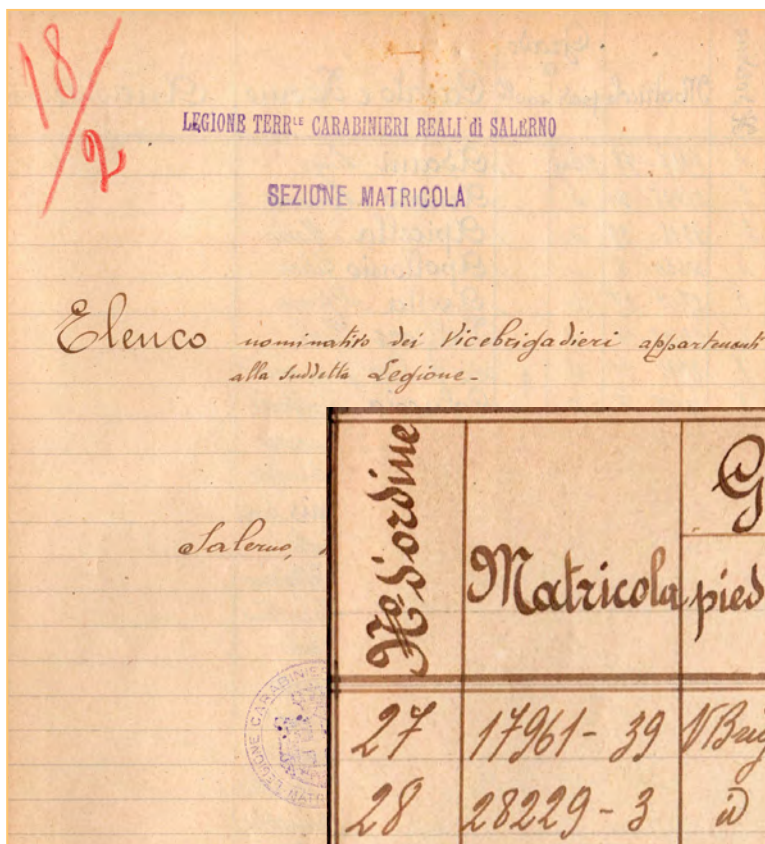 18/2
LEGIONE TERR.LE CARABINIERI REALI di SALERNO
SEZIONE MATRICOLA
Elenco nominativo dei Vicebrigadieri appartenenti
alla suddetta Legione.
Salerno,
N° d'ordine
Matricola
G
pied
27 17961-39 VBrig
28 28229-3
LEGIONE CARABINIE